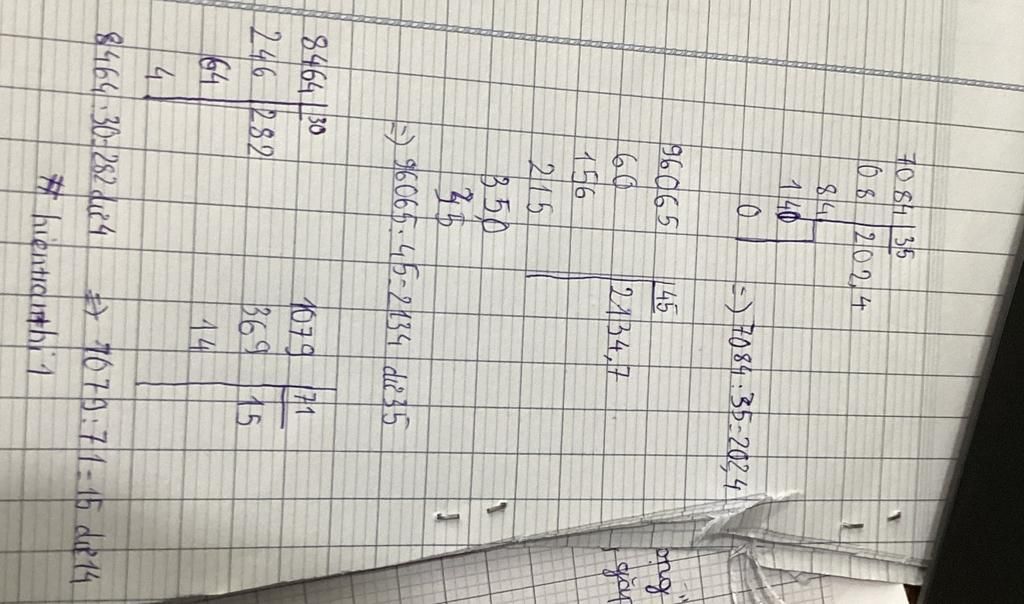 7084 35
08 202,4
84
140
0
=) 7084:35=202,4
96065 45
60 2134,7
156
215
350
35
=) 96065:45=2134 dư 35
8464 30
246 282
64
4
1079 71
369 15
14
8464:30=282 dư 4 => 1079:71=15 dư 14
# hientranthi1